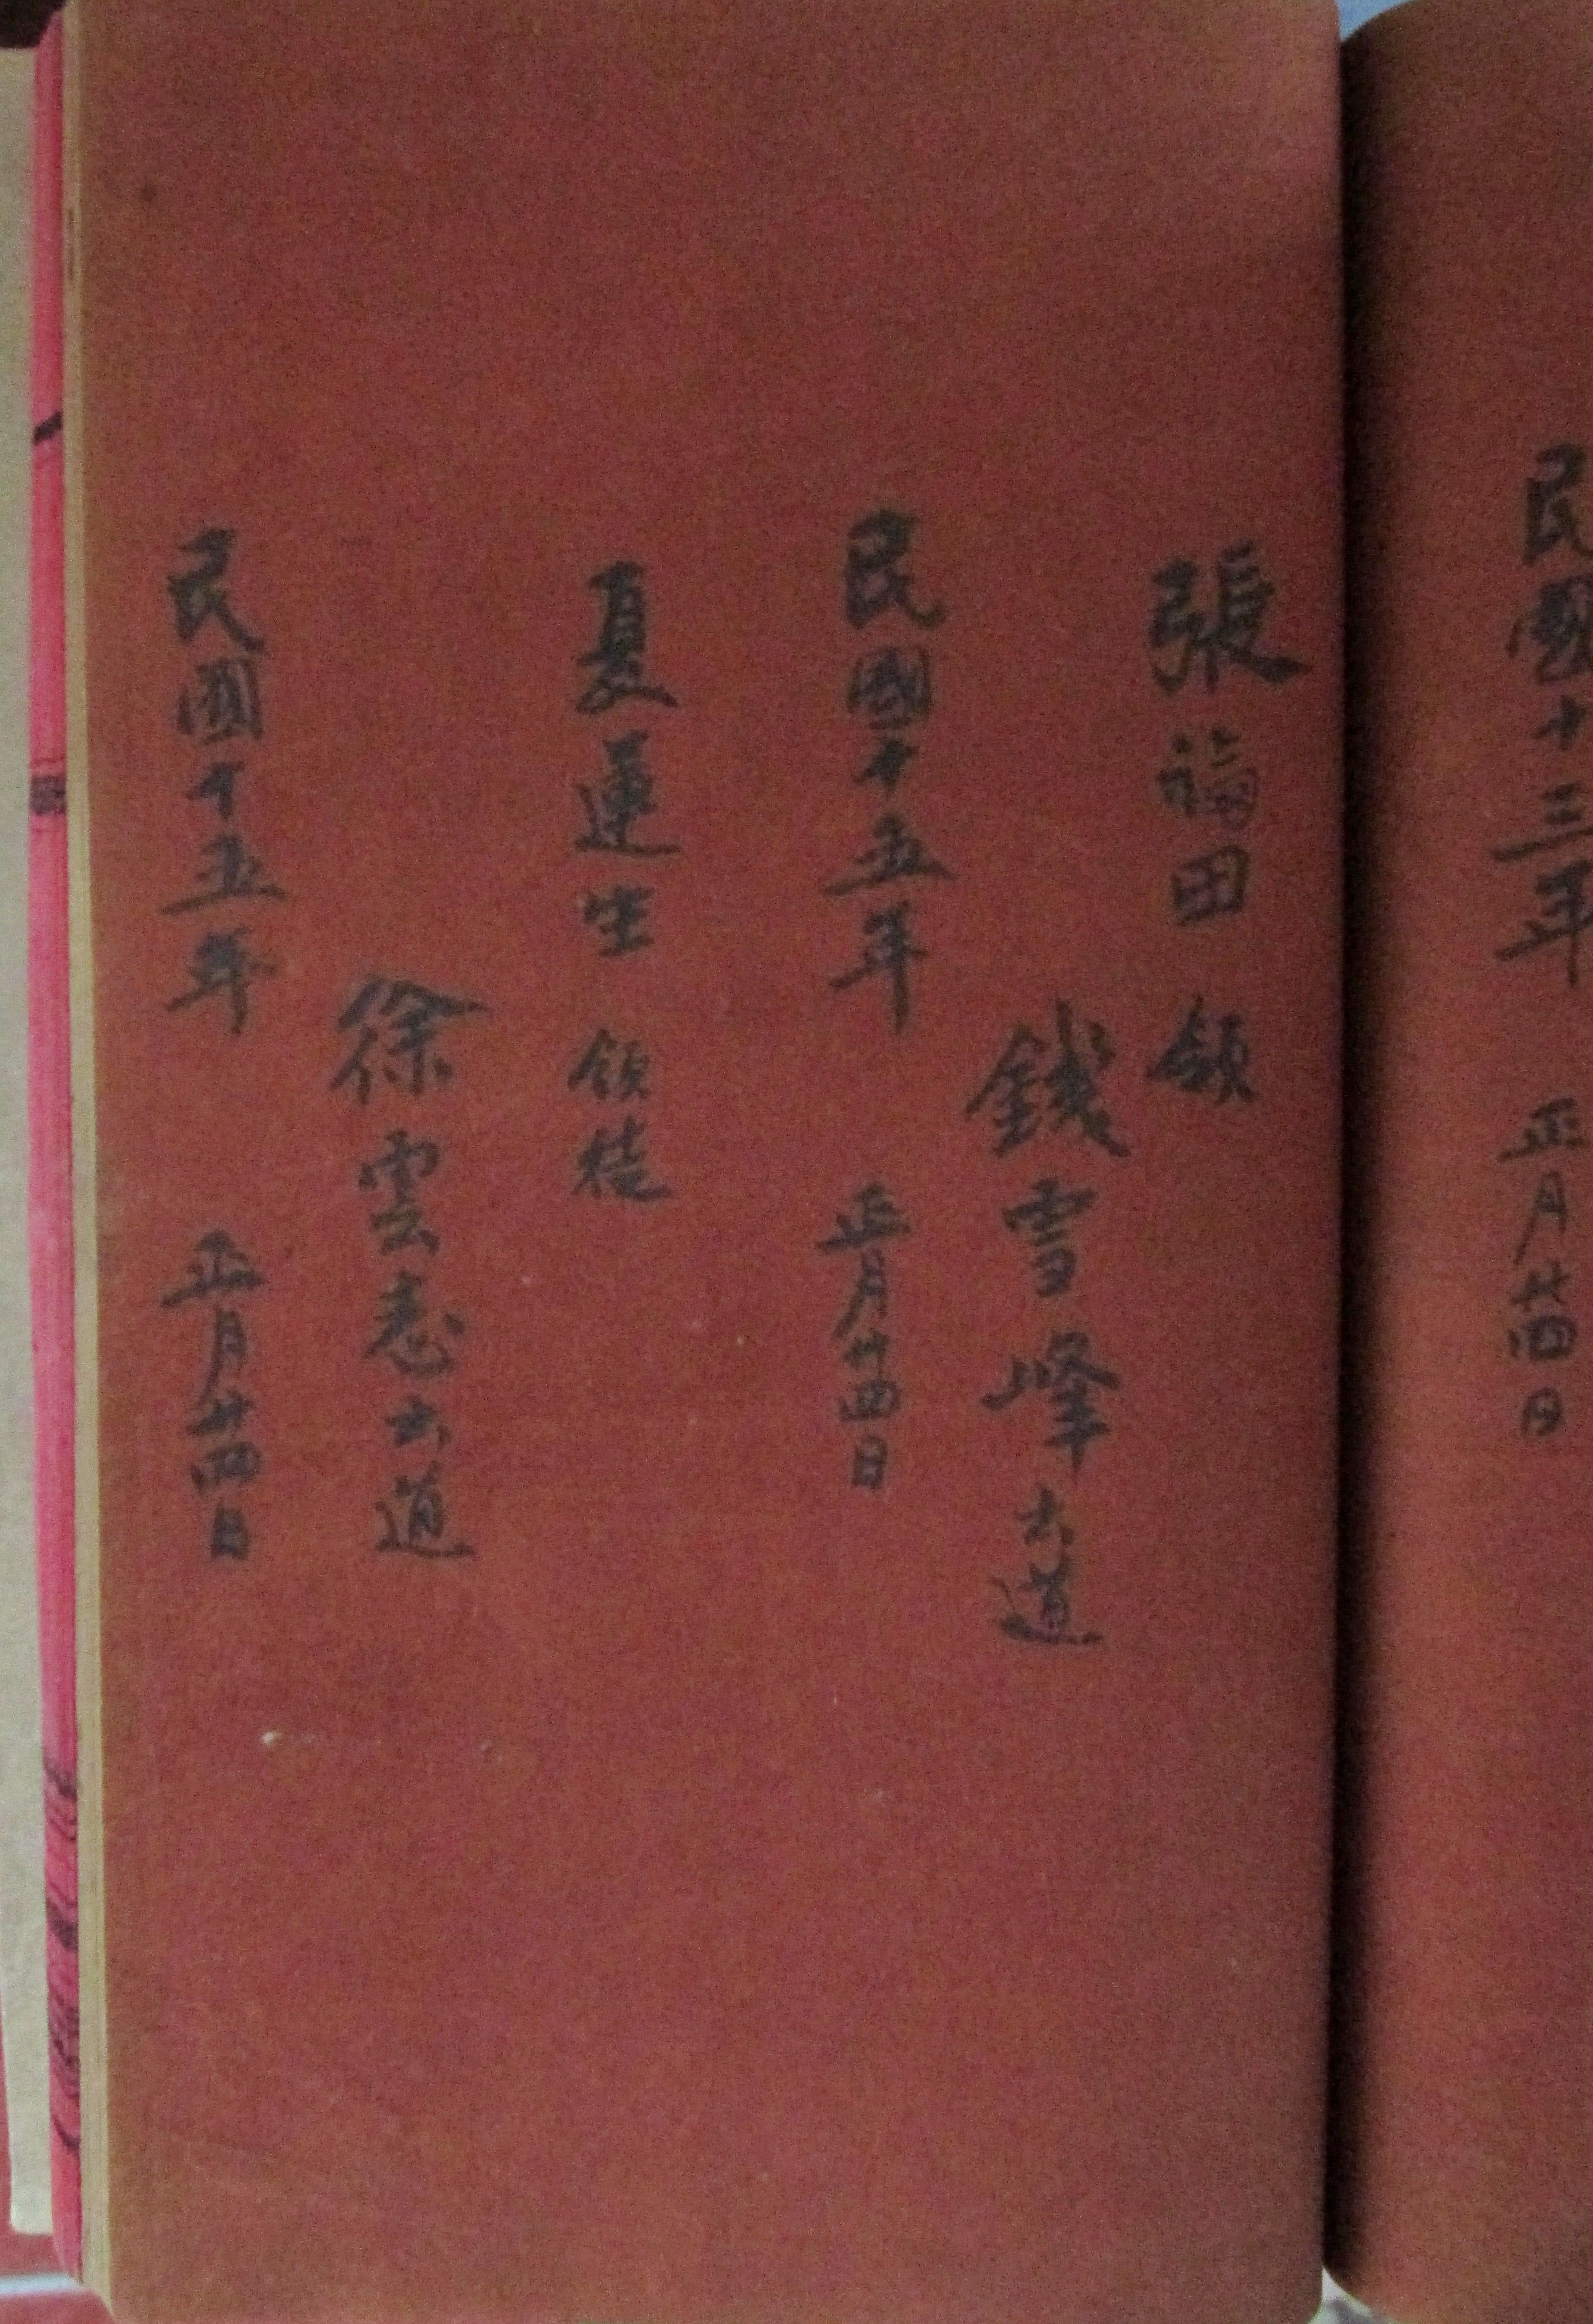 民國十三年 正月廿四日
張福田 領
錢雪峰出道
民國十五年 正月廿四日
夏蓮生 領徒
徐雲志出道
民國十五年 正月廿四日